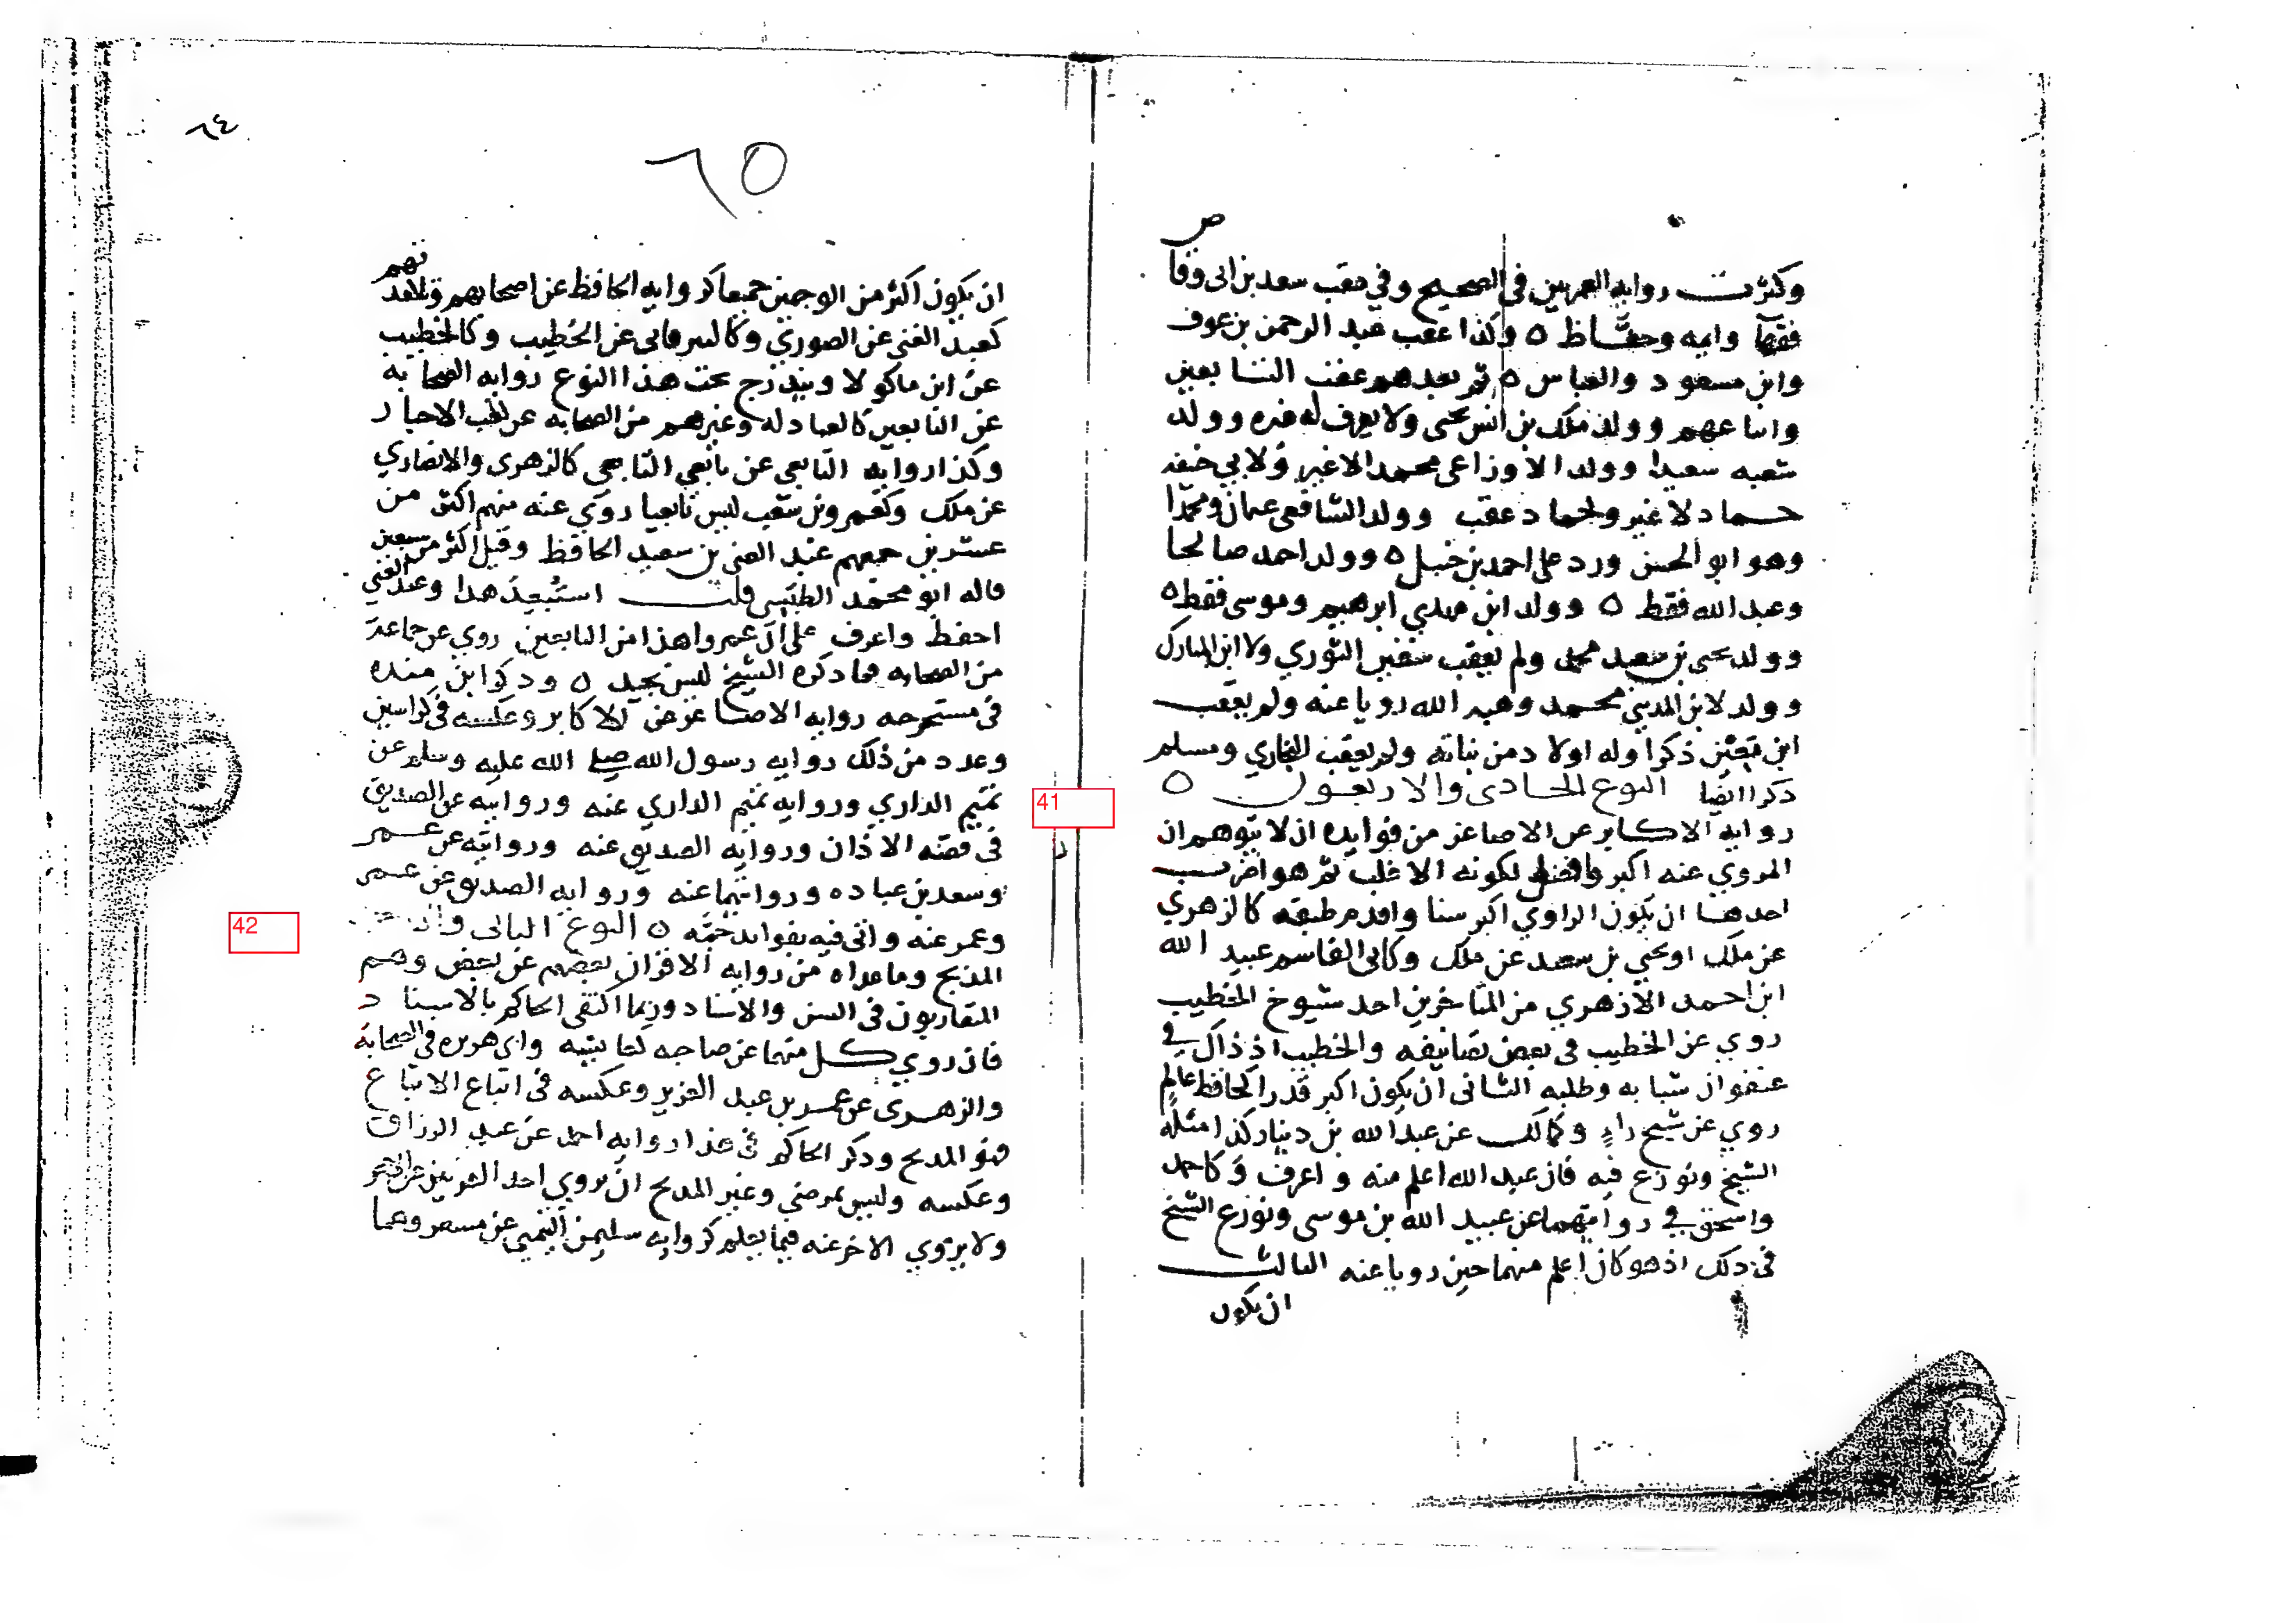 ص
وكثرت رواية العمريين في الصحيح وفي عقب سعد بن ابي وقا
فقها وايمه وحفاظ ٥ وكذا عقب عبد الرحمن بن عوف
وابن مسعود والعباس ٥ ثم بعدهم عقب التابعين
واتباعهم وولد ملك بن انس يحيى ولا يعرف له غيره وولد
شعبه سعيدا وولد الاوزاعي محمد الاغير ولابي حنيفه
حماد لا غير ولحماد عقب وولد الشافعي عثمان ومحمدا
وهو ابو الحسن ورد على احمد بن حنبل ٥ وولد احمد صالحا
وعبد الله فقط ٥ وولد ابن مهدي ابرهيم وموسى فقط ٥
وولد يحيى بن سعيد محمد ولم يعقب سفين الثوري ولا ابن المبارك
وولد لابن المديني محمد وعبد الله رويا عنه ولم يعقب
ابن معين ذكرا وله اولاد من بناته ولم يعقب البخاري ومسلم
ذكرا ايضا النوع الحادي والاربعون ٥
رواية الاكابر عن الاصاغر من فوايده ان لا يتوهم ان
المروي عنه اكبر وافضل لكونه الاغلب ثم هو اضرب
احدها ان يكون الراوي اكبر سنا واقدم طبقه كالزهري
عن ملك او يحيى بن سعيد عن ملك وكابي القاسم عبيد الله
ابن احمد الازهري من المتاخرين احد شيوخ الخطيب
روي عن الخطيب في بعض تصانيفه والخطيب اذ ذاك في
عنفوان شبابه وطلبه الثاني ان يكون اكبر قدرا كحافظ عالم
روي عن شيخ راو وكمالك عن عبد الله بن دينار كذا مثله
الشيخ ونوزع فيه فان عبد الله اعلم منه واعرف وكاحمد
واسحق في روايتهما عن عبيد الله بن موسى ونوزع الشيخ
في ذلك اذ هو كان اعلم منهما حين رويا عنه الثالث
ان يكون
٦٤
٦٥
ان يكون اكثر من الوجهين جميعا كرواية الحافظ عن اصحابهم وتلامذتهم
كعبد الغني عن الصوري وكالبرقاني عن الخطيب وكالخطيب
عن ابن ماكولا ويندرج تحت هذا النوع رواية الصحابه
عن التابعين كالعبادله وغيرهم من الصحابه عن كعب الاحبار
وكذا رواية التابعي عن تابعي التابعي كالزهري والانصاري
عن ملك وكعمرو بن شعيب ليس تابعيا روي عنه منهم اكثر من
عشرين جمعهم عبد الغني بن سعيد الحافظ وقيل اكثر من سبعين
قاله ابو محمد الطبسي قلت استبعد هذا وعبد الغني
احفظ واعرف على ان عمروا هذا من التابعين روي عن جماعة
من الصحابه فما ذكره الشيخ ليس بجيد ٥ وذكر ابن منده
في مستخرجه رواية الاصاغر عن الاكابر وعكسه في كراسين
وعدد من ذلك رواية رسول الله صلى الله عليه وسلم عن
تميم الداري ورواية تميم الداري عنه وروايته عن الصديق
في قصة الاذان ورواية الصديق عنه وروايته عن عمر
وسعد بن عباده وروايتهما عنه ورواية الصديق عن عمر
وعمر عنه واتى فيه بفوايد جمة ٥ النوع الثاني
المدبج وما عداه من رواية الاقران بعضهم عن بعض وهم
المتقاربون في السن والاسناد وربما اكتفى الحاكم بالاسناد
فان روي كل منهما عن صاحبه كعايشة وابي هريره في الصحابة
والزهري عن عمر بن عبد العزيز وعكسه في اتباع الاتباع
فهو المدبج وذكر الحاكم في هذا رواية احمد عن عبد الرزاق
وعكسه وليس بمرضي وغير المدبج ان يروي احد القرينين عن الاخر
ولا يروي الاخر عنه فيما يعلم كرواية سليمن التيمي عن مسعر وهما
41
42